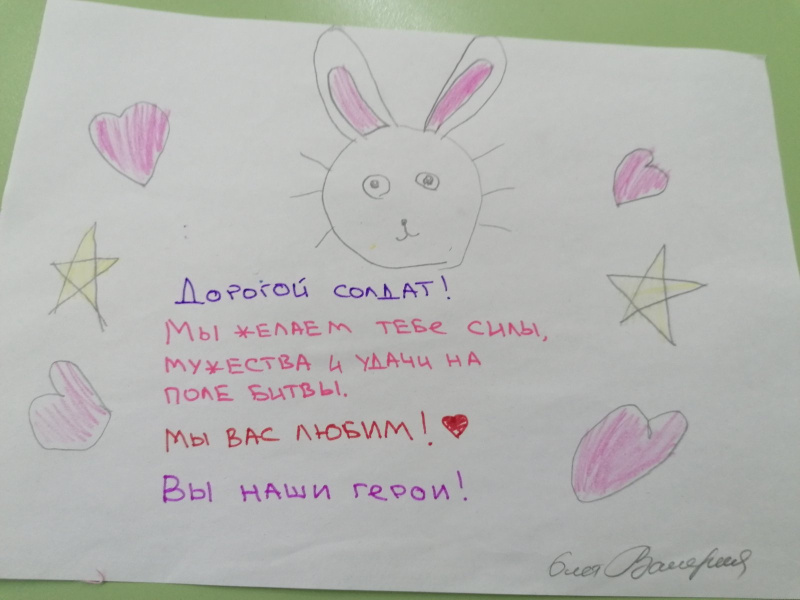 Дорогой солдат!
Мы желаем тебе силы,
мужества и удачи на
поле битвы.
Мы вас любим!
Вы наши герои!
Валерия